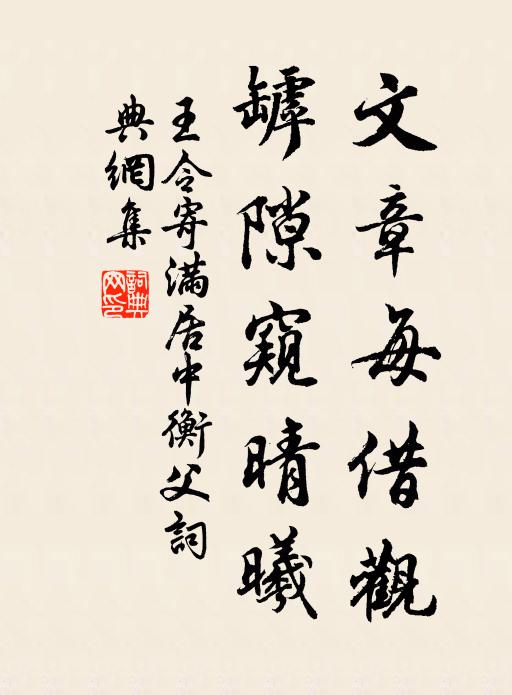 文章每借觀
罅隙窺晴曦
王令寄滿居中衡父詞
典網集
詞典網印